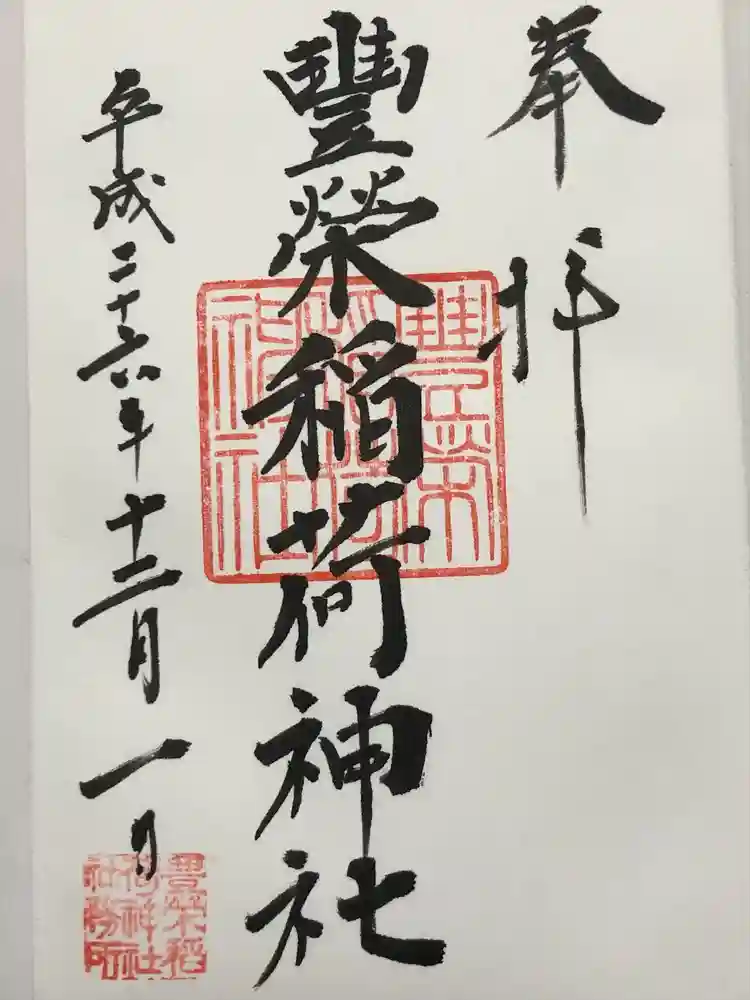 奉拝
豐榮稲荷神社
平成二十六年十二月一日
豊栄稲荷神社
豊栄稲荷神社社務所